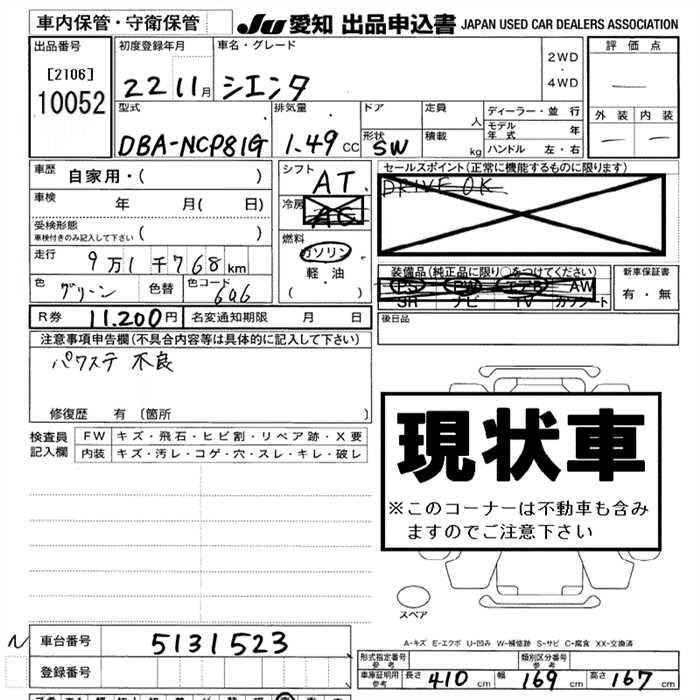 車内保管・守衛保管 JU 愛知 出品申込書 JAPAN USED CAR DEALERS ASSOCIATION
出品番号 初度登録年月 車名・グレード 評価点
[2106]
10052
22 11月 シエンタ
2WD
・
4WD
外装 内装
型式 排気量 ドア 定員 人 ディーラー・並行
モデル年式 年
DBA-NCP81G 1.49 CC 形状 SW 積載 kg ハンドル 左・右
車歴 自家用・( )
シフト AT
セールスポイント(正常に機能するものに限ります)
DRIVE OK
車検 年 月( 日)
冷房 AC
受検形態
車検付きのみ記入して下さい ( )
燃料 ガソリン
軽油
( )
走行 9万1千768km
装備品(純正品に限り○をつけてください) 新車保証書
PS PW エアB AW
SR ナビ TV カワシート
有・無
色 グリーン 色替 色コード 6Q6
R券 11.200円 名変通知期限 月 日
後日品
注意事項申告欄(不具合内容等は具体的に記入して下さい)
パワステ 不良
修復歴 有〔箇所 〕
検査員記入欄
FW キズ・飛石・ヒビ割・リペア跡・X要
内装 キズ・汚レ・コゲ・穴・スレ・キレ・破レ
現状車
※このコーナーは不動車も含み
ますのでご注意下さい
スペア
A-キズ E-エクボ U-凹み W-補修跡 S-サビ C-腐食 XX-交換済
N 車台番号 5131523
登録番号
形式指定番号 参考 類別区分番号 参考
車庫証明用 参考 長さ 410 cm 幅 169 cm 高さ 167 cm